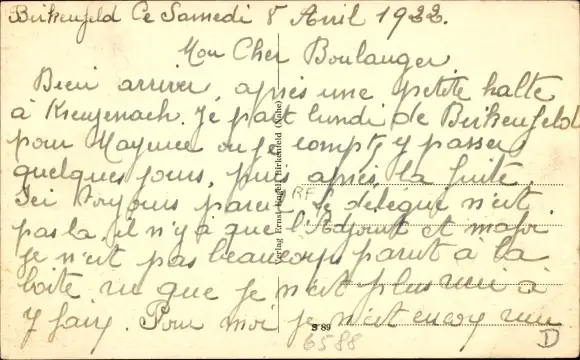 Birkenfeld Ce Samedi 8 Avril 1922.
Mon Cher Boulanger
Bien arriver, après une petite halte
à Kreuzenach. Je part lundi de Birkenfeld
pour Mayence ou je compte y passer
quelques jours, puis après la suite.
Ici toujours pareil le délégué n'est
pas la, il n'y a que l'Adjoint et major
je n'est pas beaucoup parut à la
boite vu que je n'est plus rien à
y faire. Pour moi je n'est encore rien
Verlag Ernst Birkenfeld (Nahe)
RF
S 89
6588
D